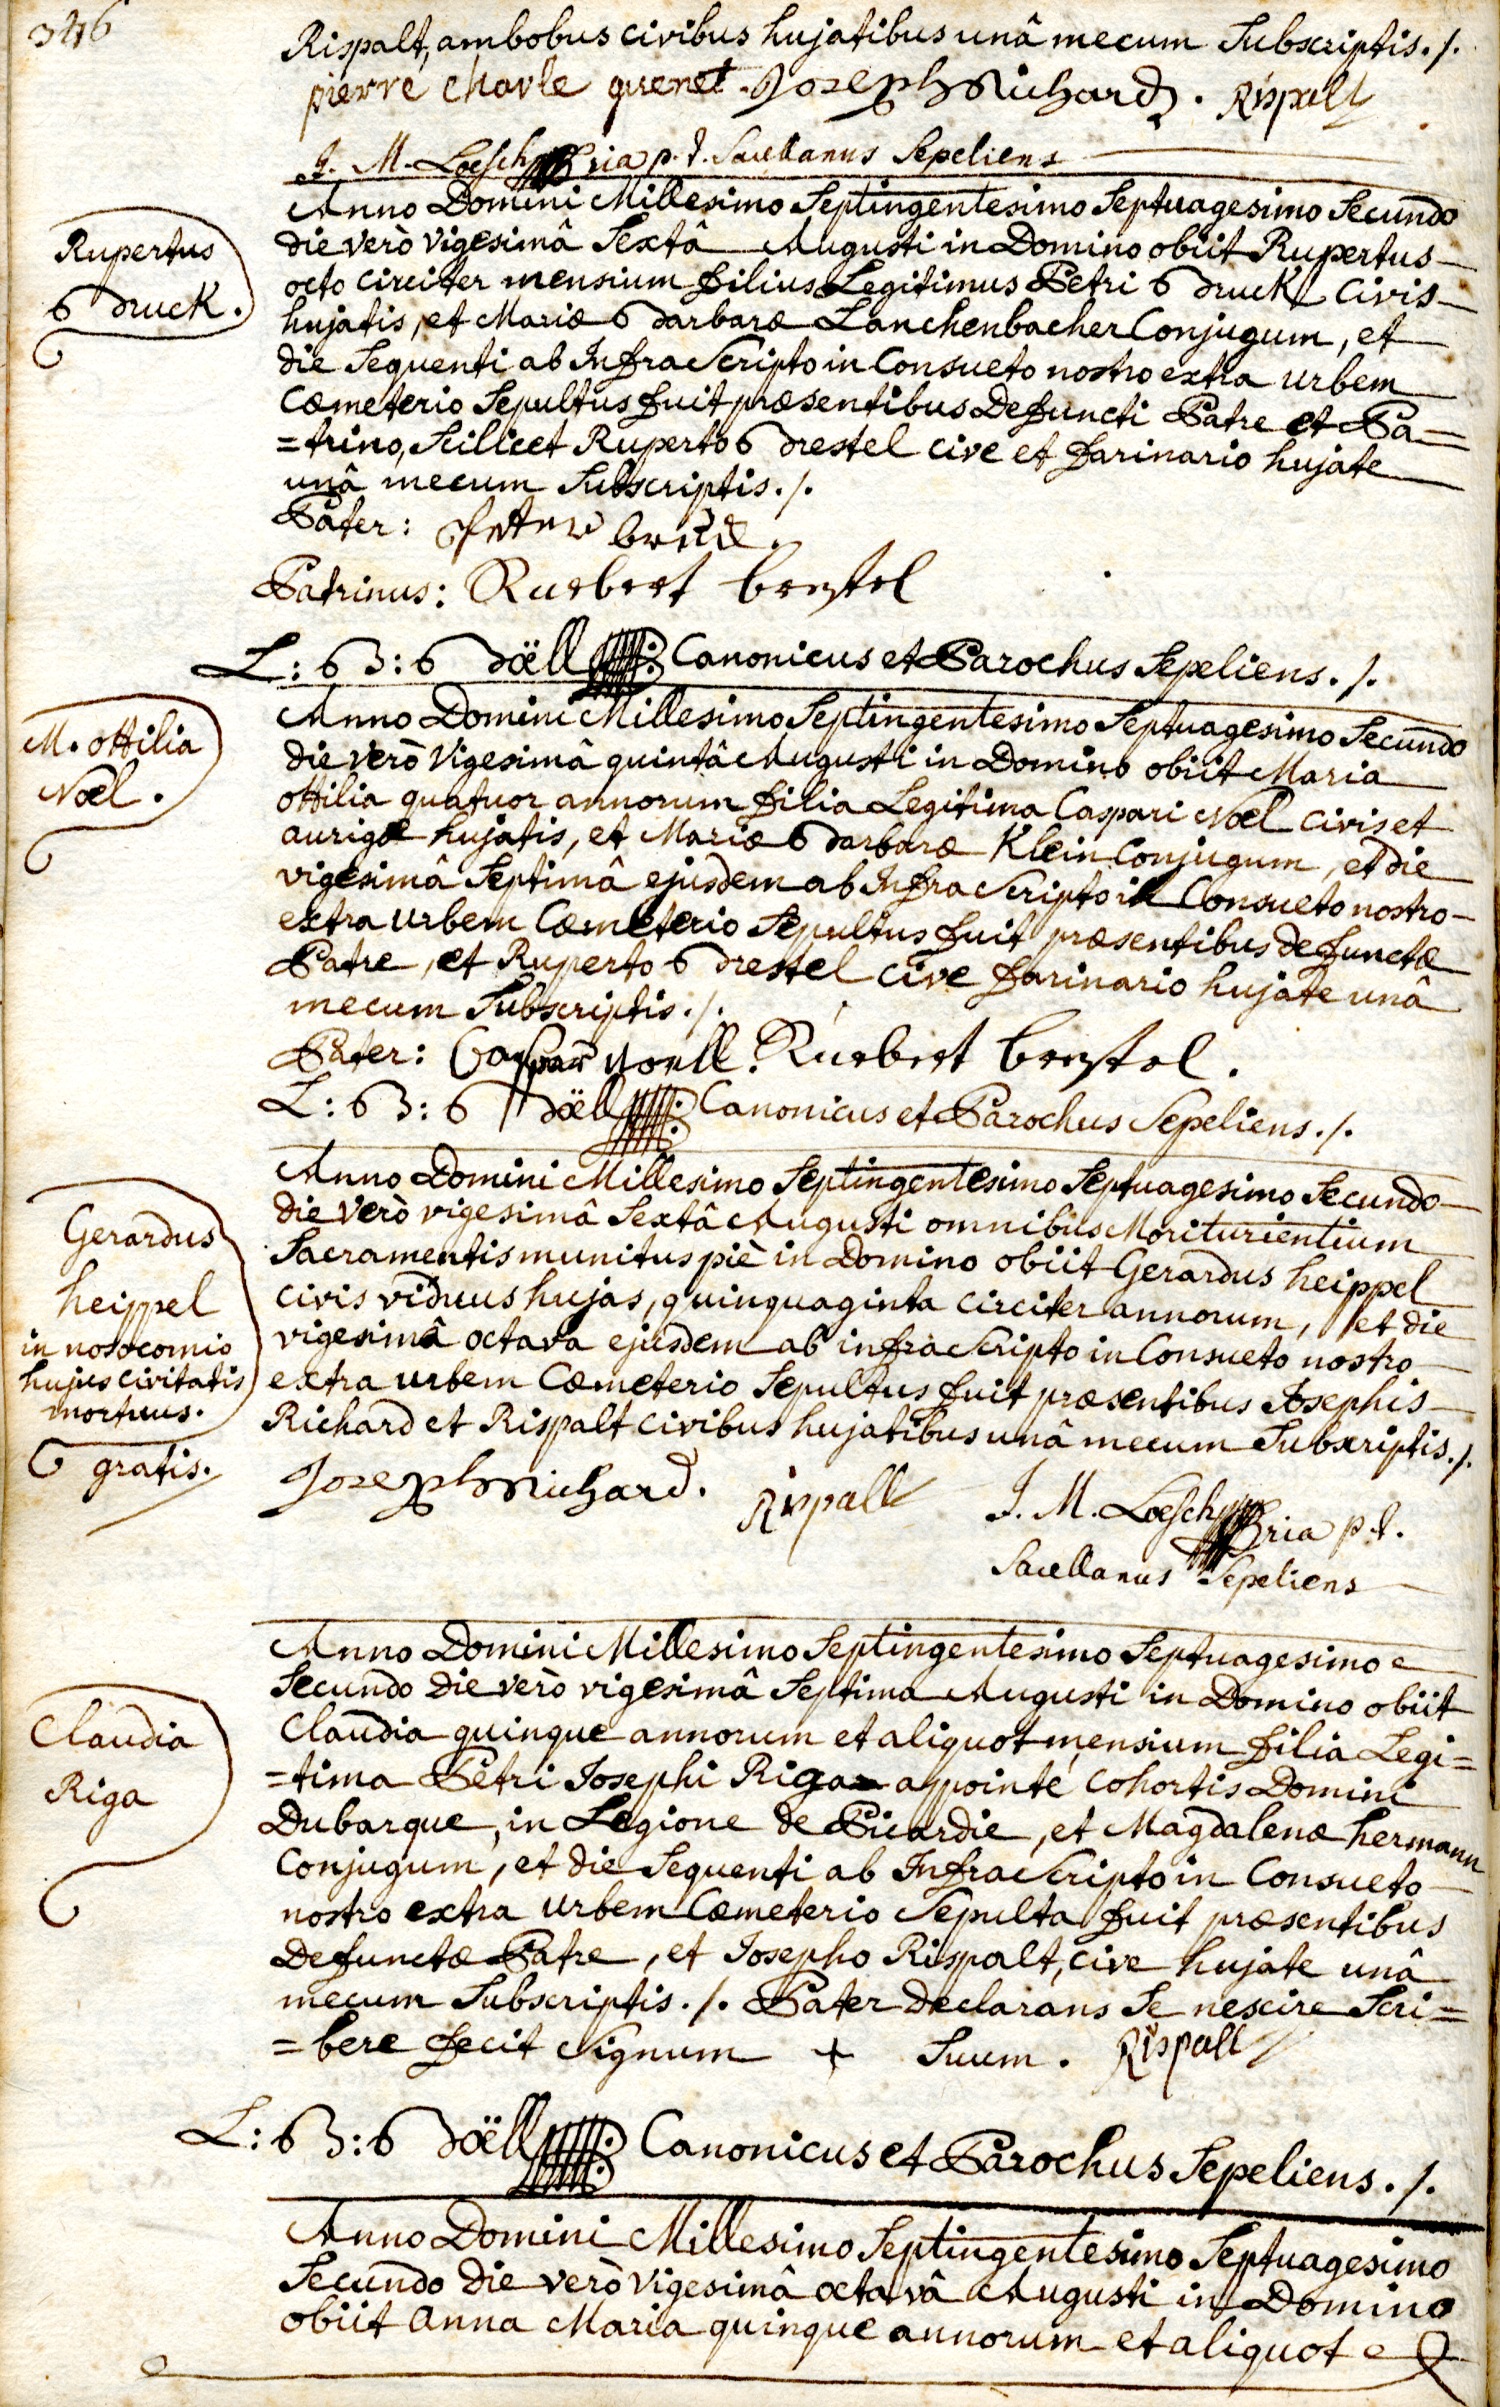 346
Rispalt, ambobus civibus hujatibus unâ mecum Subscriptis ./.
pierre charle quenet. Joseph Richard. Rispalt
J. M. Loesch p. t. Sacellanus Sepeliens
Rupertus
Bruck.
Anno Domini Millesimo Septingentesimo Septuagesimo Secundo
die verò vigesimâ Sextâ Augusti in Domino obiit Rupertus
octo circiter mensium filius Legitimus Petri Bruck civis
hujatis, et Mariæ Barbaræ Lanchenbacher Conjugum, et
die Sequenti ab Infra Scripto in Consueto nostro extra urbem
Cœmeterio Sepultus fuit præsentibus Defuncti Patre et Pa=
=trino, Scilicet Ruperto Brestel cive et farinario hujate
unâ mecum Subscriptis ./.
Pater: Peter bruck.
Patrinus: Ruebert brestel
L: B: Böell Canonicus et Parochus Sepeliens ./.
M. ottilia
Noël.
Anno Domini Millesimo Septingentesimo Septuagesimo Secundo
die verò Vigesimâ quintâ Augusti in Domino obiit Maria
ottilia quatuor annorum filia Legitima Caspari Noël civis et
aurigæ hujatis, et Mariæ Barbaræ Klein Conjugum, et die
vigesimâ Septimâ ejusdem ab Infra Scripto in Consueto nostro
extra urbem Cœmeterio Sepultus fuit præsentibus defunctæ
Patre, et Ruperto Brestel cive farinario hujate unâ
mecum Subscriptis ./.
Pater: Caspar Noell. Ruebert brestel.
L: B: Böell Canonicus et Parochus Sepeliens ./.
Gerardus
heippel
in nosocomio
hujus civitatis
mortuus.
gratis.
Anno Domini Millesimo Septingentesimo Septuagesimo Secundo
die verò vigesimâ Sextâ Augusti omnibus Moriturientium
Sacramentis munitus piè in Domino obiit Gerardus heippel
civis viduus hujas, quinquaginta circiter annorum, et die
vigesimâ octava ejusdem ab infra Scripto in Consueto nostro
extra urbem Cœmeterio Sepultus fuit præsentibus Josephis
Richard et Rispalt civibus hujatibus unâ mecum Subscriptis ./.
Joseph Richard. Rispalt J. M. Loesch p. t.
Sacellanus Sepeliens
Claudia
Riga
Anno Domini Millesimo Septingentesimo Septuagesimo
Secundo die verò vigesimâ Septima Augusti in Domino obiit
Claudia quinque annorum et aliquot mensium filia Legi=
=tima Petri Josephi Riga appointé Cohortis Domini
Dubarque, in Legione de Picardie, et Magdalenæ hermann
Conjugum, et die Sequenti ab Infra Scripto in Consueto
nostro extra urbem Cœmeterio Sepulta fuit præsentibus
Defunctæ Patre, et Josepho Rispalt, cive hujate unâ
mecum Subscriptis ./. Pater declarans Se nescire Scri=
=bere fecit Signum + Suum. Rispalt
L: B: Böell Canonicus et Parochus Sepeliens ./.
Anno Domini Millesimo Septingentesimo Septuagesimo
Secundo die verò Vigesimâ octavâ Augusti in Domino
obiit Anna Maria quinque annorum et aliquot